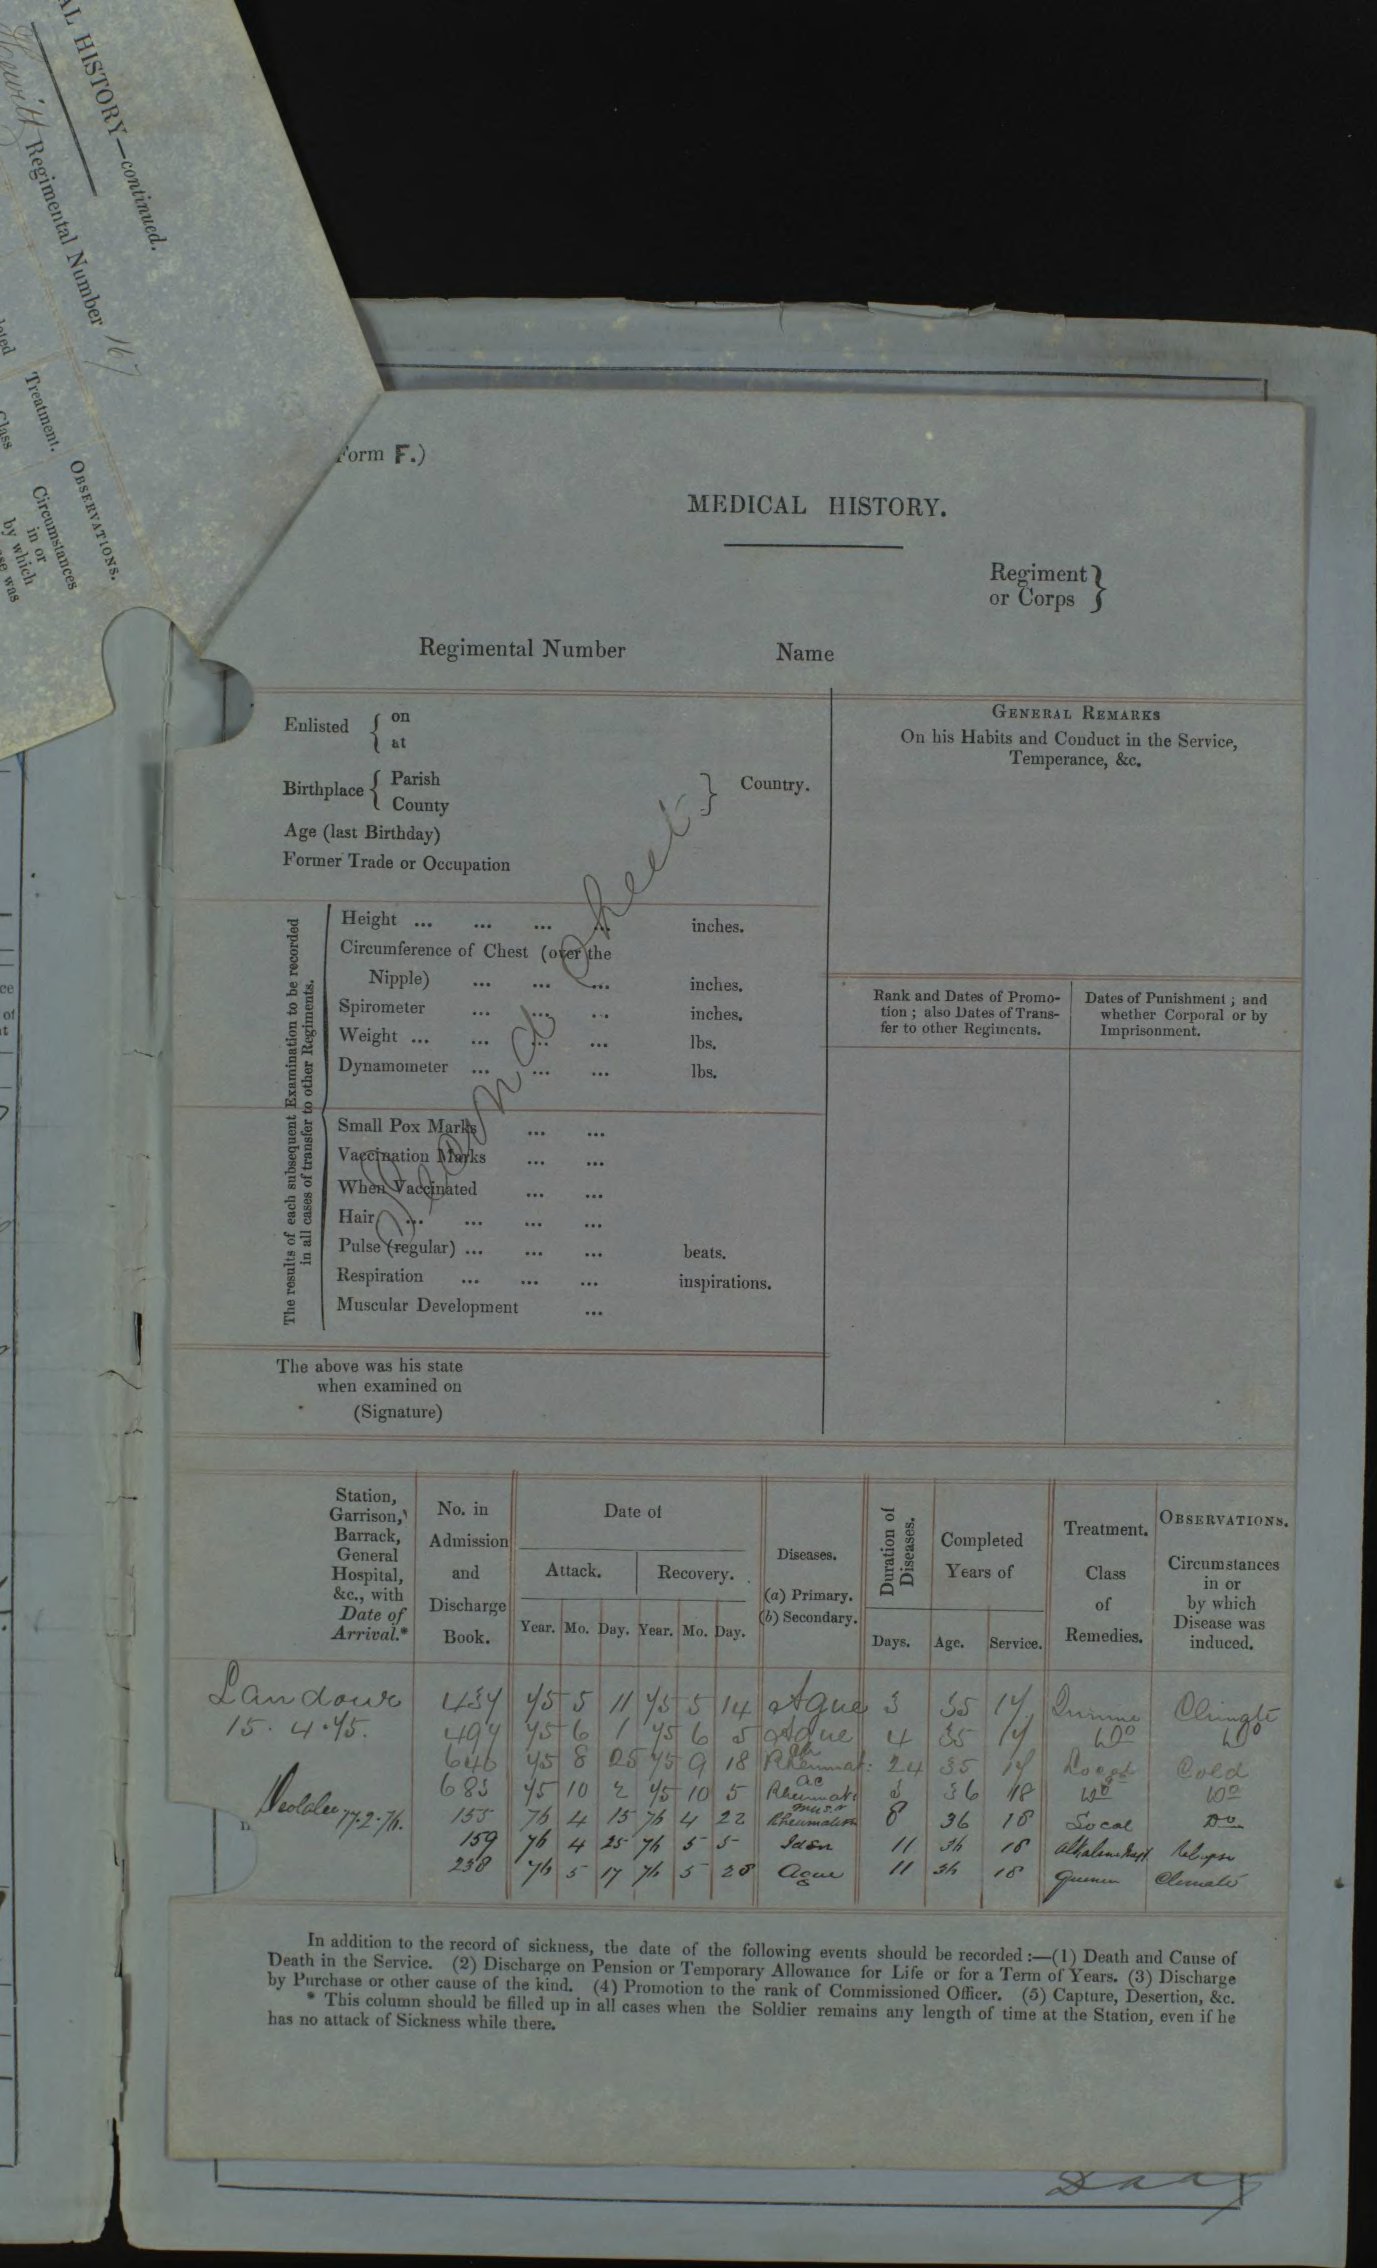 AL HISTORY—continued.
Hewitt Regimental Number 167
Treatment.
OBSERVATIONS.
Class
Circumstances
in or
by which
(Form F.)
MEDICAL HISTORY.
Regiment
or Corps
Regimental Number Name
Enlisted on
at
Birthplace Parish
County
Country.
Age (last Birthday)
Former Trade or Occupation
GENERAL REMARKS
On his Habits and Conduct in the Service,
Temperance, &c.
Second sheet
The results of each subsequent Examination to be recorded
in all cases of transfer to other Regiments.
Height ... ... ... ... inches.
Circumference of Chest (over the
Nipple) ... ... ... inches.
Spirometer ... ... ... inches.
Weight ... ... ... ... lbs.
Dynamometer ... ... ... lbs.
Small Pox Marks ... ...
Vaccination Marks ... ...
When Vaccinated ... ...
Hair ... ... ... ...
Pulse (regular) ... ... ... beats.
Respiration ... ... ... inspirations.
Muscular Development ...
Rank and Dates of Promo-
tion; also Dates of Trans-
fer to other Regiments.
Dates of Punishment; and
whether Corporal or by
Imprisonment.
The above was his state
when examined on
(Signature)
Station,
Garrison,
Barrack,
General
Hospital,
&c., with
Date of
Arrival.*
No. in
Admission
and
Discharge
Book.
Date of
Attack. Recovery.
Year. Mo. Day. Year. Mo. Day.
Diseases.
(a) Primary.
(b) Secondary.
Duration of
Diseases.
Days.
Completed
Years of
Age. Service.
Treatment.
Class
of
Remedies.
OBSERVATIONS.
Circumstances
in or
by which
Disease was
induced.
Landour 437 75 5 11 75 5 14 Ague 3 35 17 Quinine Climate
15.4.75. 497 75 6 1 75 6 5 Ague 4 35 17 Do Do
646 75 8 25 75 9 18 Rheumat: 24 35 17 Local Cold
683 75 10 2 75 10 5 Ac Rheumat: 3 36 18 Do Do
Deolalee 17.2.76. 155 76 4 15 76 4 22 Rheumatism 8 36 18 Local Do
159 76 4 25 76 5 5 Idem 11 36 18 Alkaline Relapse
238 76 5 17 76 5 28 Ague 11 36 18 Quinine Climate
In addition to the record of sickness, the date of the following events should be recorded:—(1) Death and Cause of
Death in the Service. (2) Discharge on Pension or Temporary Allowance for Life or for a Term of Years. (3) Discharge
by Purchase or other cause of the kind. (4) Promotion to the rank of Commissioned Officer. (5) Capture, Desertion, &c.
* This column should be filled up in all cases when the Soldier remains any length of time at the Station, even if he
has no attack of Sickness while there.